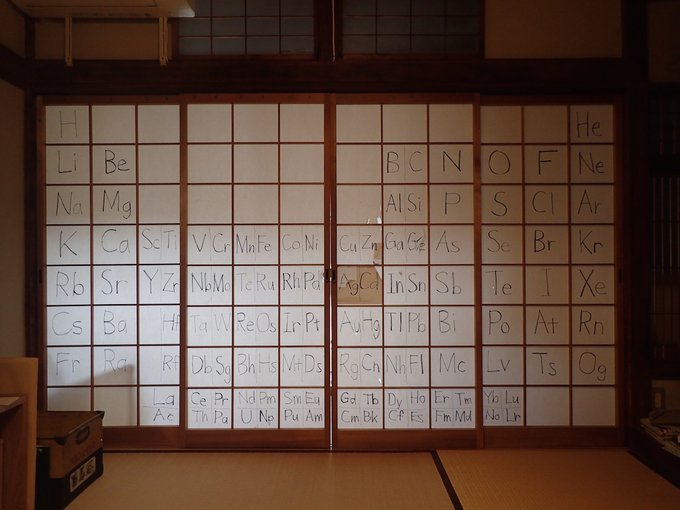 H He
Li Be B C N O F Ne
Na Mg Al Si P S Cl Ar
K Ca Sc Ti V Cr Mn Fe Co Ni Cu Zn Ga Ge As Se Br Kr
Rb Sr Y Zr Nb Mo Tc Ru Rh Pd Ag Cd In Sn Sb Te I Xe
Cs Ba Hf Ta W Re Os Ir Pt Au Hg Tl Pb Bi Po At Rn
Fr Ra Rf Db Sg Bh Hs Mt Ds Rg Cn Nh Fl Mc Lv Ts Og
La Ce Pr Nd Pm Sm Eu Gd Tb Dy Ho Er Tm Yb Lu
Ac Th Pa U Np Pu Am Cm Bk Cf Es Fm Md No Lr